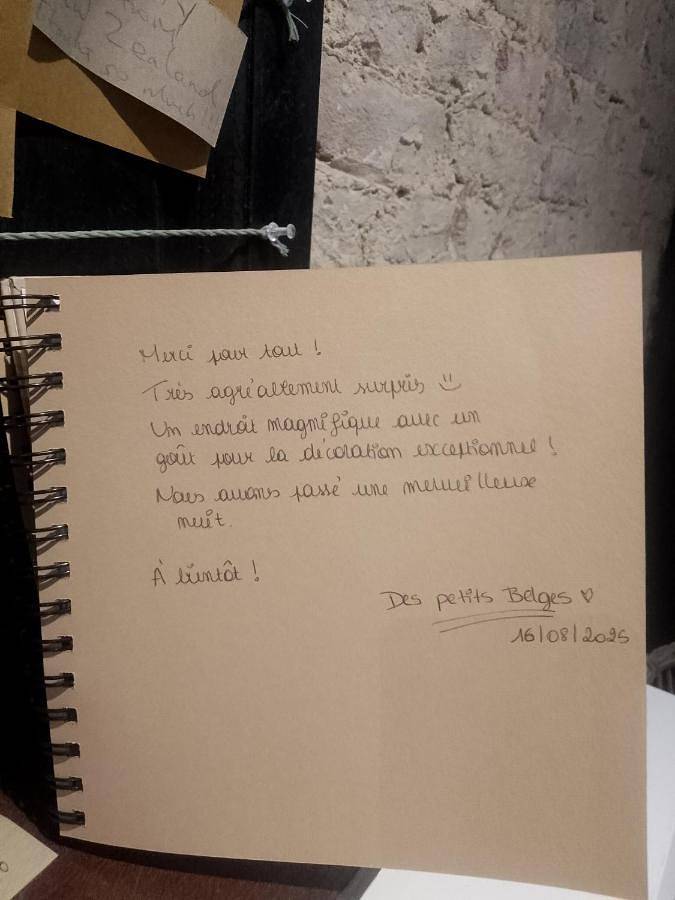 Zealand
so much!!
Merci pour tout !
Très agréablement surpris :)
Un endroit magnifique avec un
goût pour la décoration exceptionnel !
Nous avons passé une merveilleuse
nuit.
À bientôt !
Des petits Belges ♡
16/08/2025